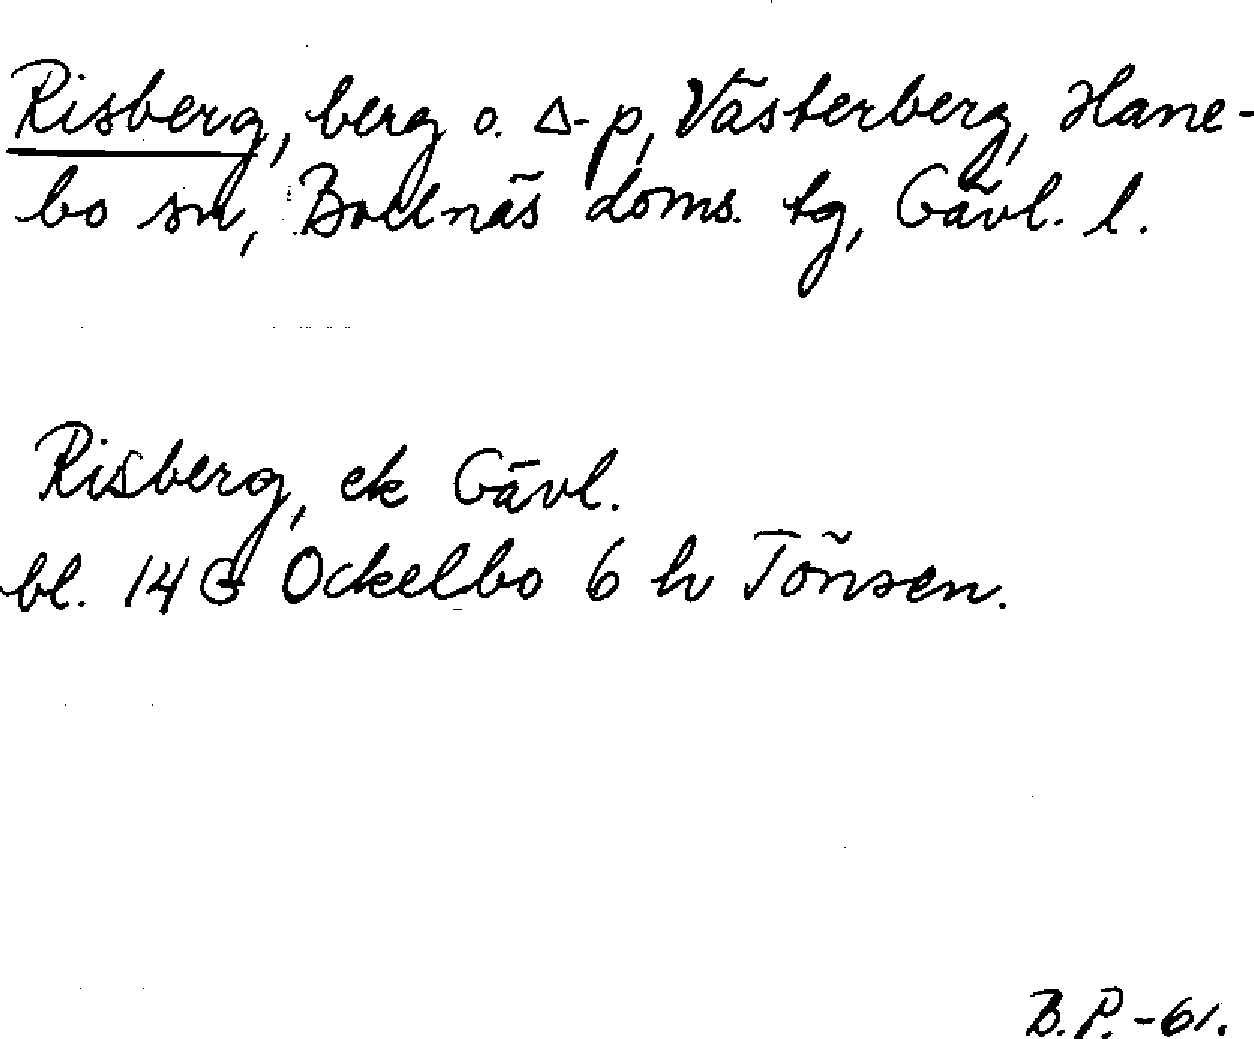 Risberg, berg o. Δ-p, Västerberg, Hane-
bo sn, Bollnäs doms. tg, Gävl. l.
Risberg, ek Gävl.
bl. 14 G Ockelbo 6 h Tönsen.
B.P. -61.